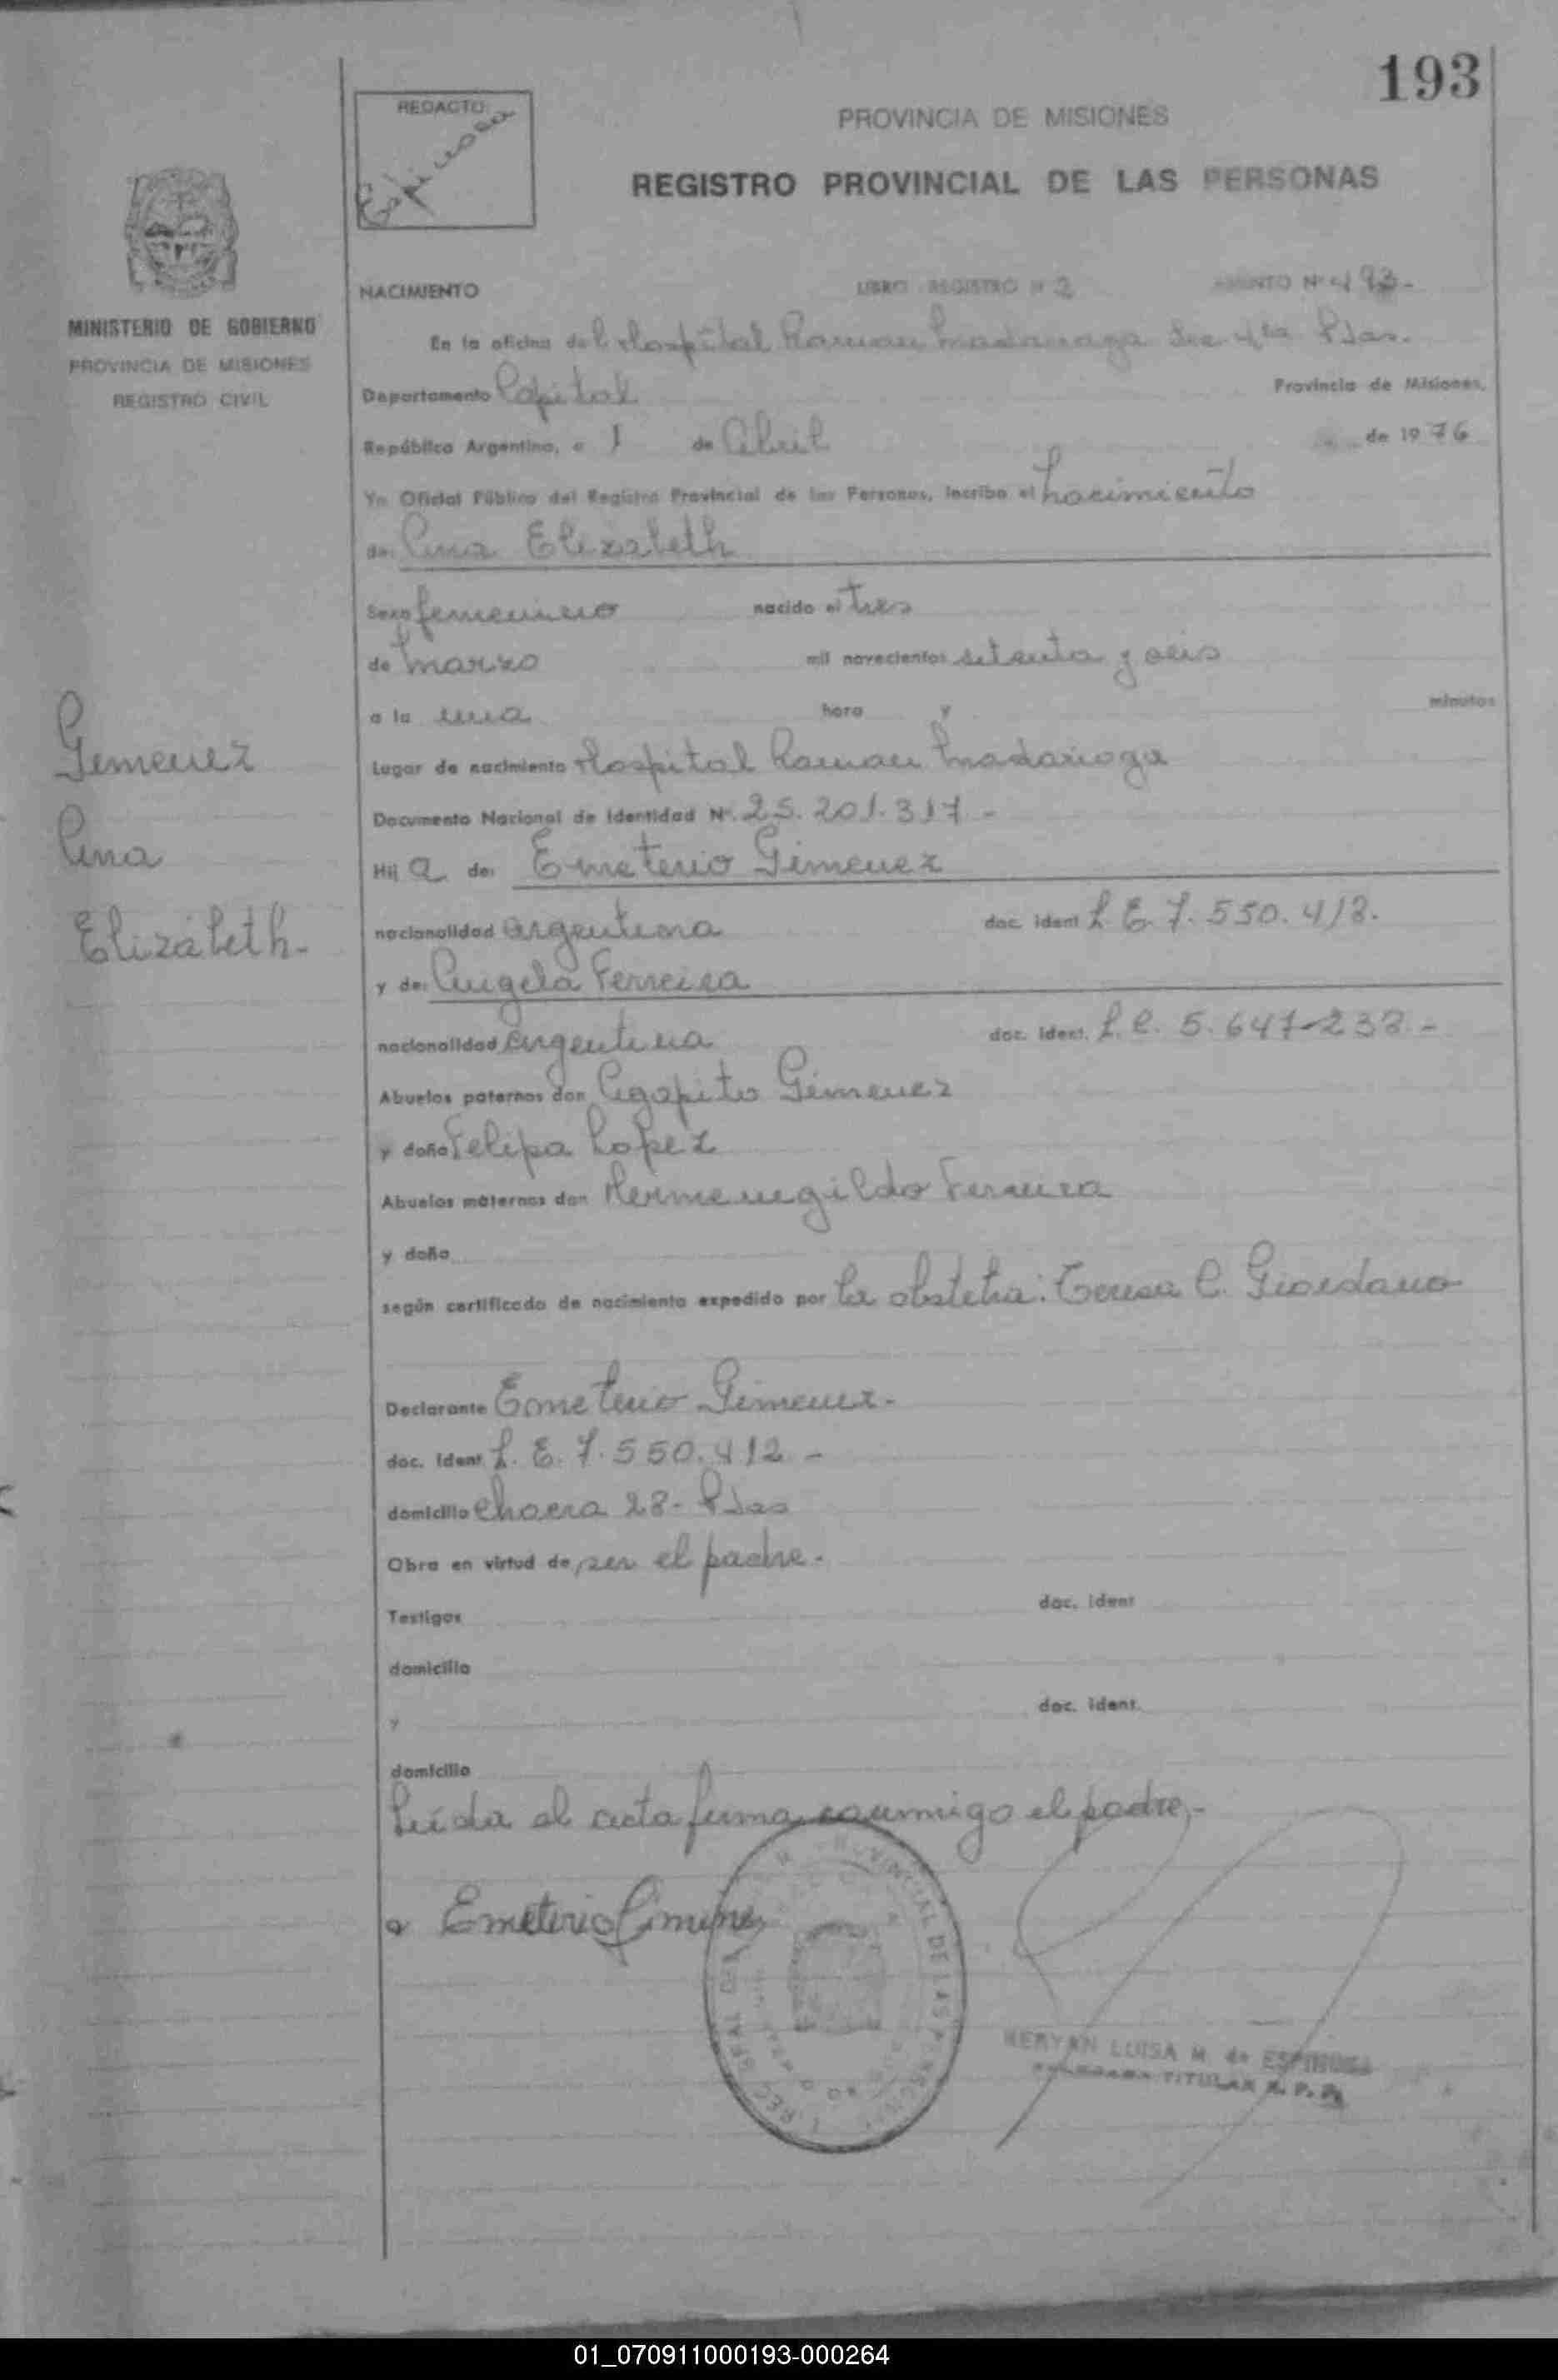 193
REDACTO
Espinosa
PROVINCIA DE MISIONES
REGISTRO PROVINCIAL DE LAS PERSONAS
MINISTERIO DE GOBIERNO
PROVINCIA DE MISIONES
REGISTRO CIVIL
NACIMIENTO LIBRO REGISTRO Nº 2 ASIENTO Nº 193-
En la oficina del Hospital Ramon Madariaga Sec 4ta Pdas.
Departamento Capital Provincia de Misiones,
República Argentina, a 1 de Abril de 1976
Yo Oficial Público del Registro Provincial de las Personas, inscribo el nacimiento
de: Ana Elizabeth
Sexo femenino nacido el tres
de marzo mil novecientos setenta y seis
a la una hora y minutos
Gimenez
Ana
Elizabeth-
Lugar de nacimiento Hospital Ramon Madariaga
Documento Nacional de Identidad Nº. 25.201.317-
Hij a de: Emeterio Gimenez
nacionalidad argentina doc. ident L E. 7.550.412.
y de: Angela Ferreira
nacionalidad argentina doc. ident. L.C. 5.647.238-
Abuelos paternos don Agapito Gimenez
y doña Felipa Lopez
Abuelos maternos don Hermenegildo Ferreira
y doña
según certificado de nacimiento expedido por la obstetra: Teresa C. Giordano
Declarante Emeterio Gimenez-
doc. ident L. E. 7.550.412-
domicilio chacra 28- Pdas
Obra en virtud de ser el padre.
Testigos doc. ident
domicilio
y doc. ident.
domicilio
Leída el acta firma conmigo el padre,-
Emeterio Gimenez
PROVINCIAL DE LAS PERSONAS
NERYAN LUISA M. de ESPINOSA
TITULAR R. P. P.
01_070911000193-000264